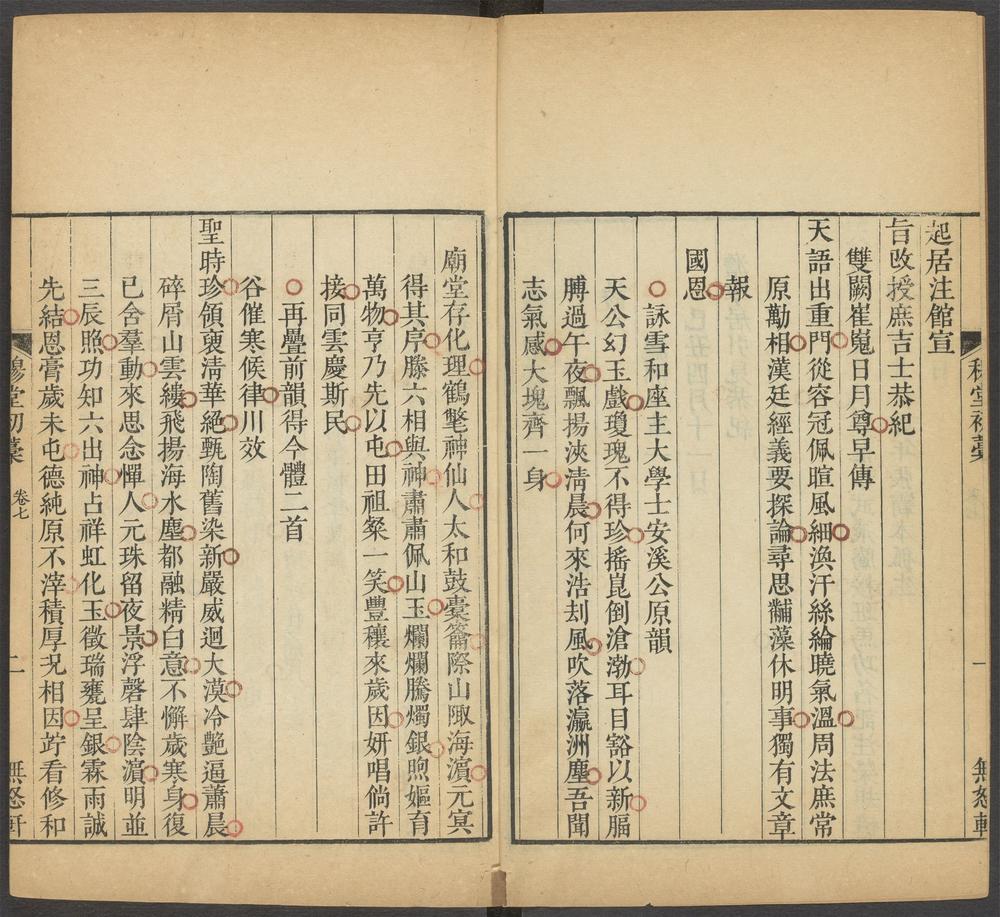 起居注館宣
旨改授庶吉士恭紀
雙闕崔嵬日月尊早傳
天語出重門從容冠佩暄風細渙汗絲綸曉氣溫周法庶常
原勱相漢廷經義要探論尋思黼藻休明事獨有文章
報
國恩
詠雪和座主大學士安溪公原韻
天公幻玉戲瓊瑰不得珍搖崑倒滄渤耳目豁以新腷
膊過午夜飄揚浹清晨何來浩刦風吹落瀛洲塵吾聞
志氣感大塊齊一身
廟堂存化理鶴氅神仙人太和鼓橐籥際山陬海濵元冥
得其序滕六相與神肅肅佩山玉爛爛騰燭銀煦嫗育
萬物亨乃先以屯田祖粲一笑豐穰來歲因妍唱倘許
接同雲慶斯民
再疊前韻得今體二首
谷催寒候律川效
聖時珍領要清華絕甄陶舊染新嚴威迴大漠冷艷逼蕭晨
碎屑山雲縷飛揚海水塵都融精白意不懈歲寒身復
已含羣動來思念憚人元珠留夜景浮磬肆陰濵明並
三辰照功知六出神占祥虹化玉徵瑞甕呈銀霖雨誠
先結恩膏歲未屯德純原不滓積厚況相因竚看修和
堂初藁
卷七
一
二
無怒軒